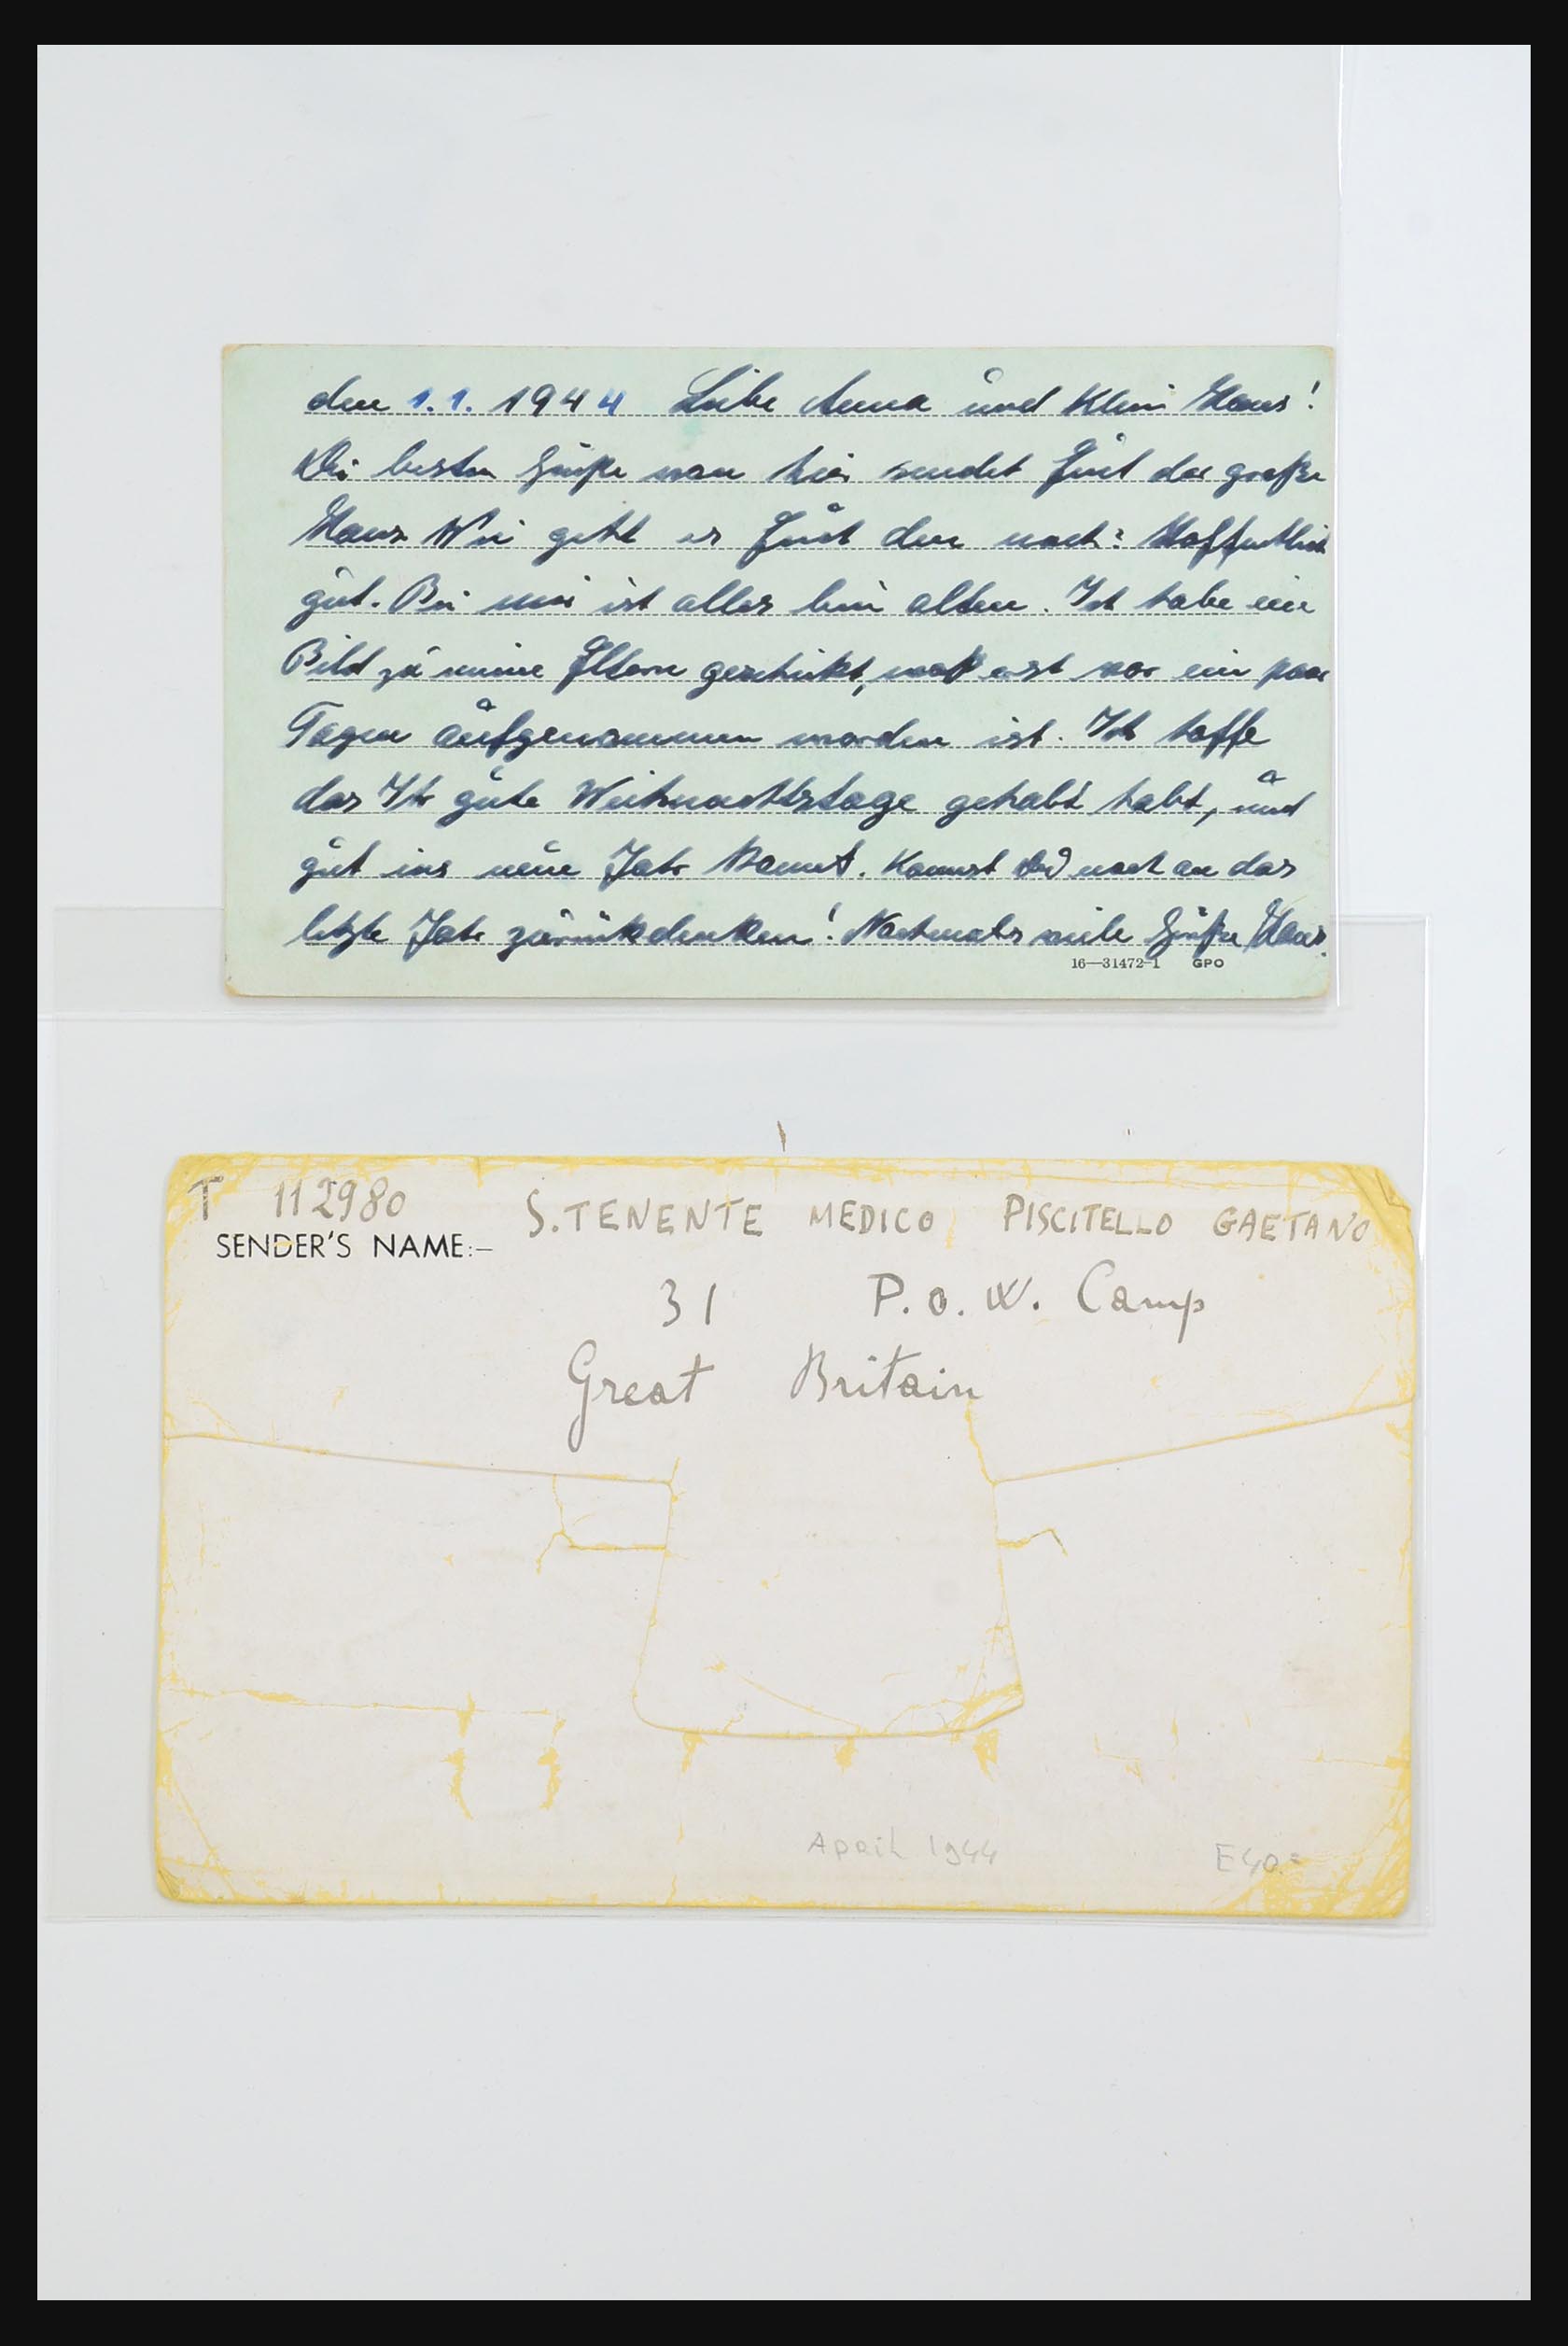 den 1.1.1944 Liebe Anna und Klein Hans!
Die besten Grüße von hier sendet Euch der große
Hans. Wie geht es Euch den noch? Hoffentlich
gut. Bei mir ist alles beim alten. Ich habe ein
Bild zu meine Eltern geschickt, was erst vor ein paar
Tagen aufgenommen worden ist. Ich hoffe
das Ihr gute Weihnachtstage gehabt habt, und
gut ins neue Jahr kamt. Kannst du noch an das
letzte Jahr zurückdenken! Nochmals viele Grüße Hans.
16—31472-1 GPO
T 112980 S.TENENTE MEDICO PISCITELLO GAETANO
SENDER'S NAME:—
31 P.O.W. Camp
Great Britain
April 1944
E40.=